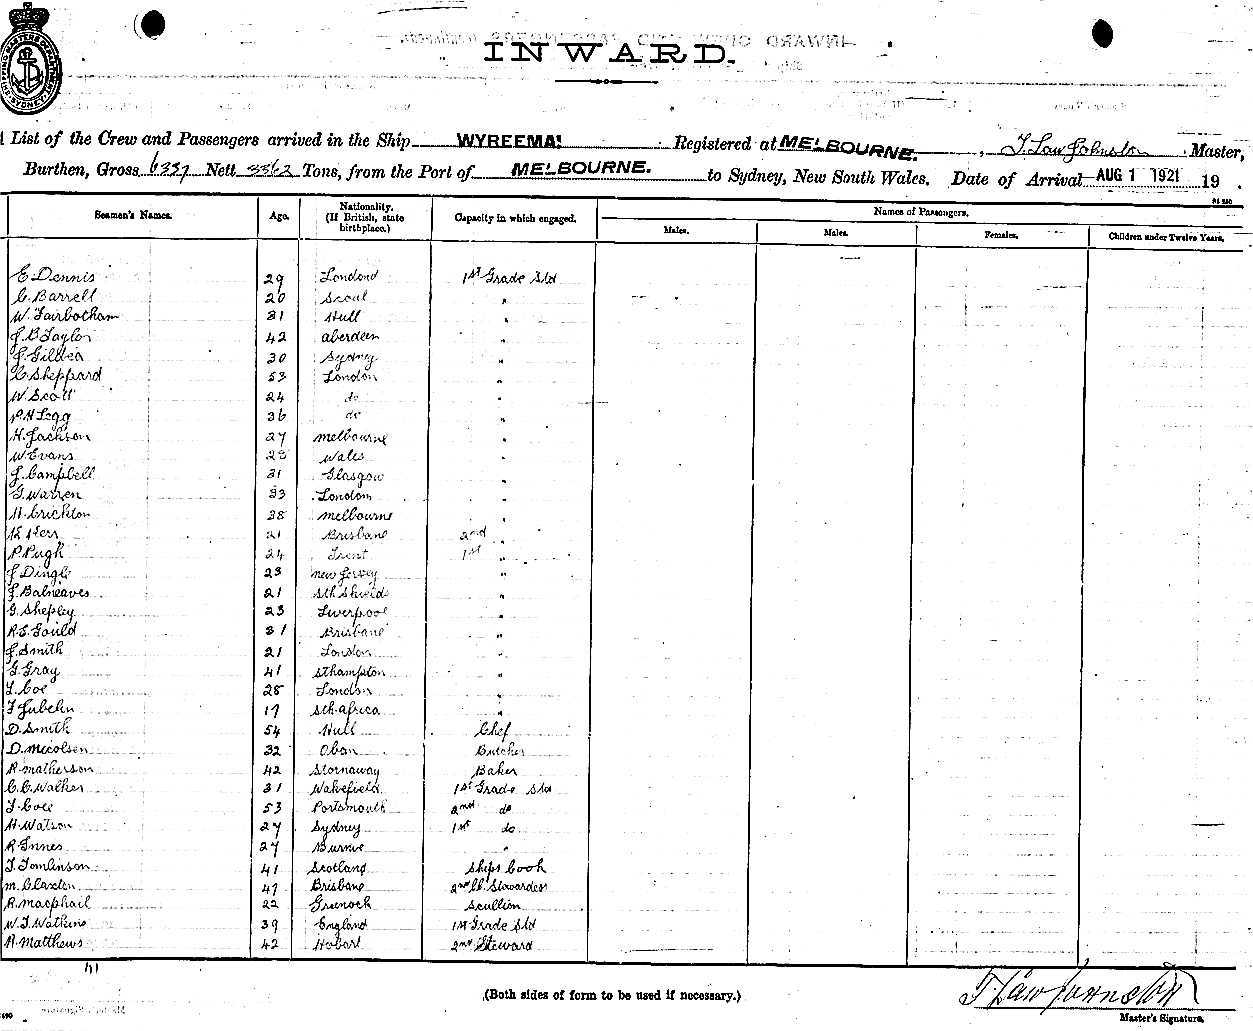 INWARD.
List of the Crew and Passengers arrived in the Ship WYREEMA Registered at MELBOURNE. , T. Law Johnston Master,
Burthen, Gross 6337 Nett 3362 Tons, from the Port of MELBOURNE. to Sydney, New South Wales. Date of Arrival AUG 1 1921 19 .
Seamen's Names. Age. Nationality. (If British, state birthplace.) Capacity in which engaged. Names of Passengers.
Males. Males. Females. Children under Twelve Years.
E Dennis 29 London 1st Grade Std
C. Barrell 20 "
W. Fairbotham 31 Hull "
J. B Taylor 42 aberdeen "
J. Gillea 30 Sydney "
C. Sheppard 53 London "
W Scott 24 do "
H Legg 36 do "
H. Jackson 27 melbourne "
W. Evans 28 Wales "
J. Campbell 31 Glasgow "
G. Warren 33 London "
H. Crichton 38 melbourne "
Kerr 21 Brisbane 2nd "
P. Pugh 24 Trent 1st "
J Dingle 23 new Jersey "
J. Balneaves 21 Sth Shields "
G. Shepley 23 Liverpool "
R. E. Gould 31 Brisbane "
J. Smith 21 London "
G. Gray 41 Sthampton "
L. Coe 28 London "
F Jubelin 17 Sth Africa "
D. Smith 54 Hull Chef
D. Mccolsen 32 Oban Butcher
R matherson 42 Stornaway Baker
C. C. Walker 31 Wakefield 1st Grade Std
F. Cole 53 Portsmouth 2nd do
H. Watson 27 Sydney 1st do
R. Innes 27 Burnie "
T. Tomlinson 41 Scotland Ships Cook
m. Claxton 47 Brisbane 2nd Cl. Stewardess
R. macphail 22 Greenock Scullion
W. J. Watkins 39 England 1st Grade Std
R. Matthews 42 Hobart 2nd Steward
41
(Both sides of form to be used if necessary.)
T Law Johnston
Master's Signature.